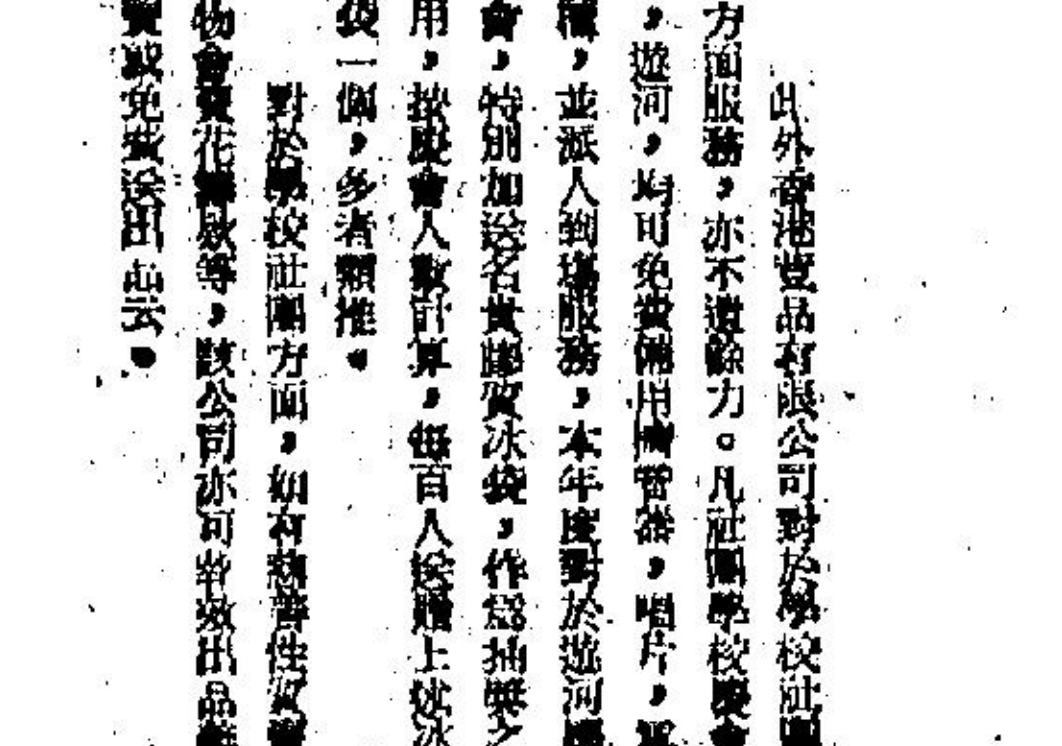 此外香港荳品有限公司對於學校社團
方面服務，亦不遺餘力。凡社團學校慶會
，遊河，均可免費備用播音器，唱片，
，並派人到塲服務，本年度對於遊河
會，特別加送名貴膠質冰袋，作為抽獎之
用，按慶會人數計算，每百人送贈上述冰
袋一個，多者類推。
對於學校社團方面，如有慈善性質
物會賣花籌欵等，該公司亦可効出品
或免費送出云。